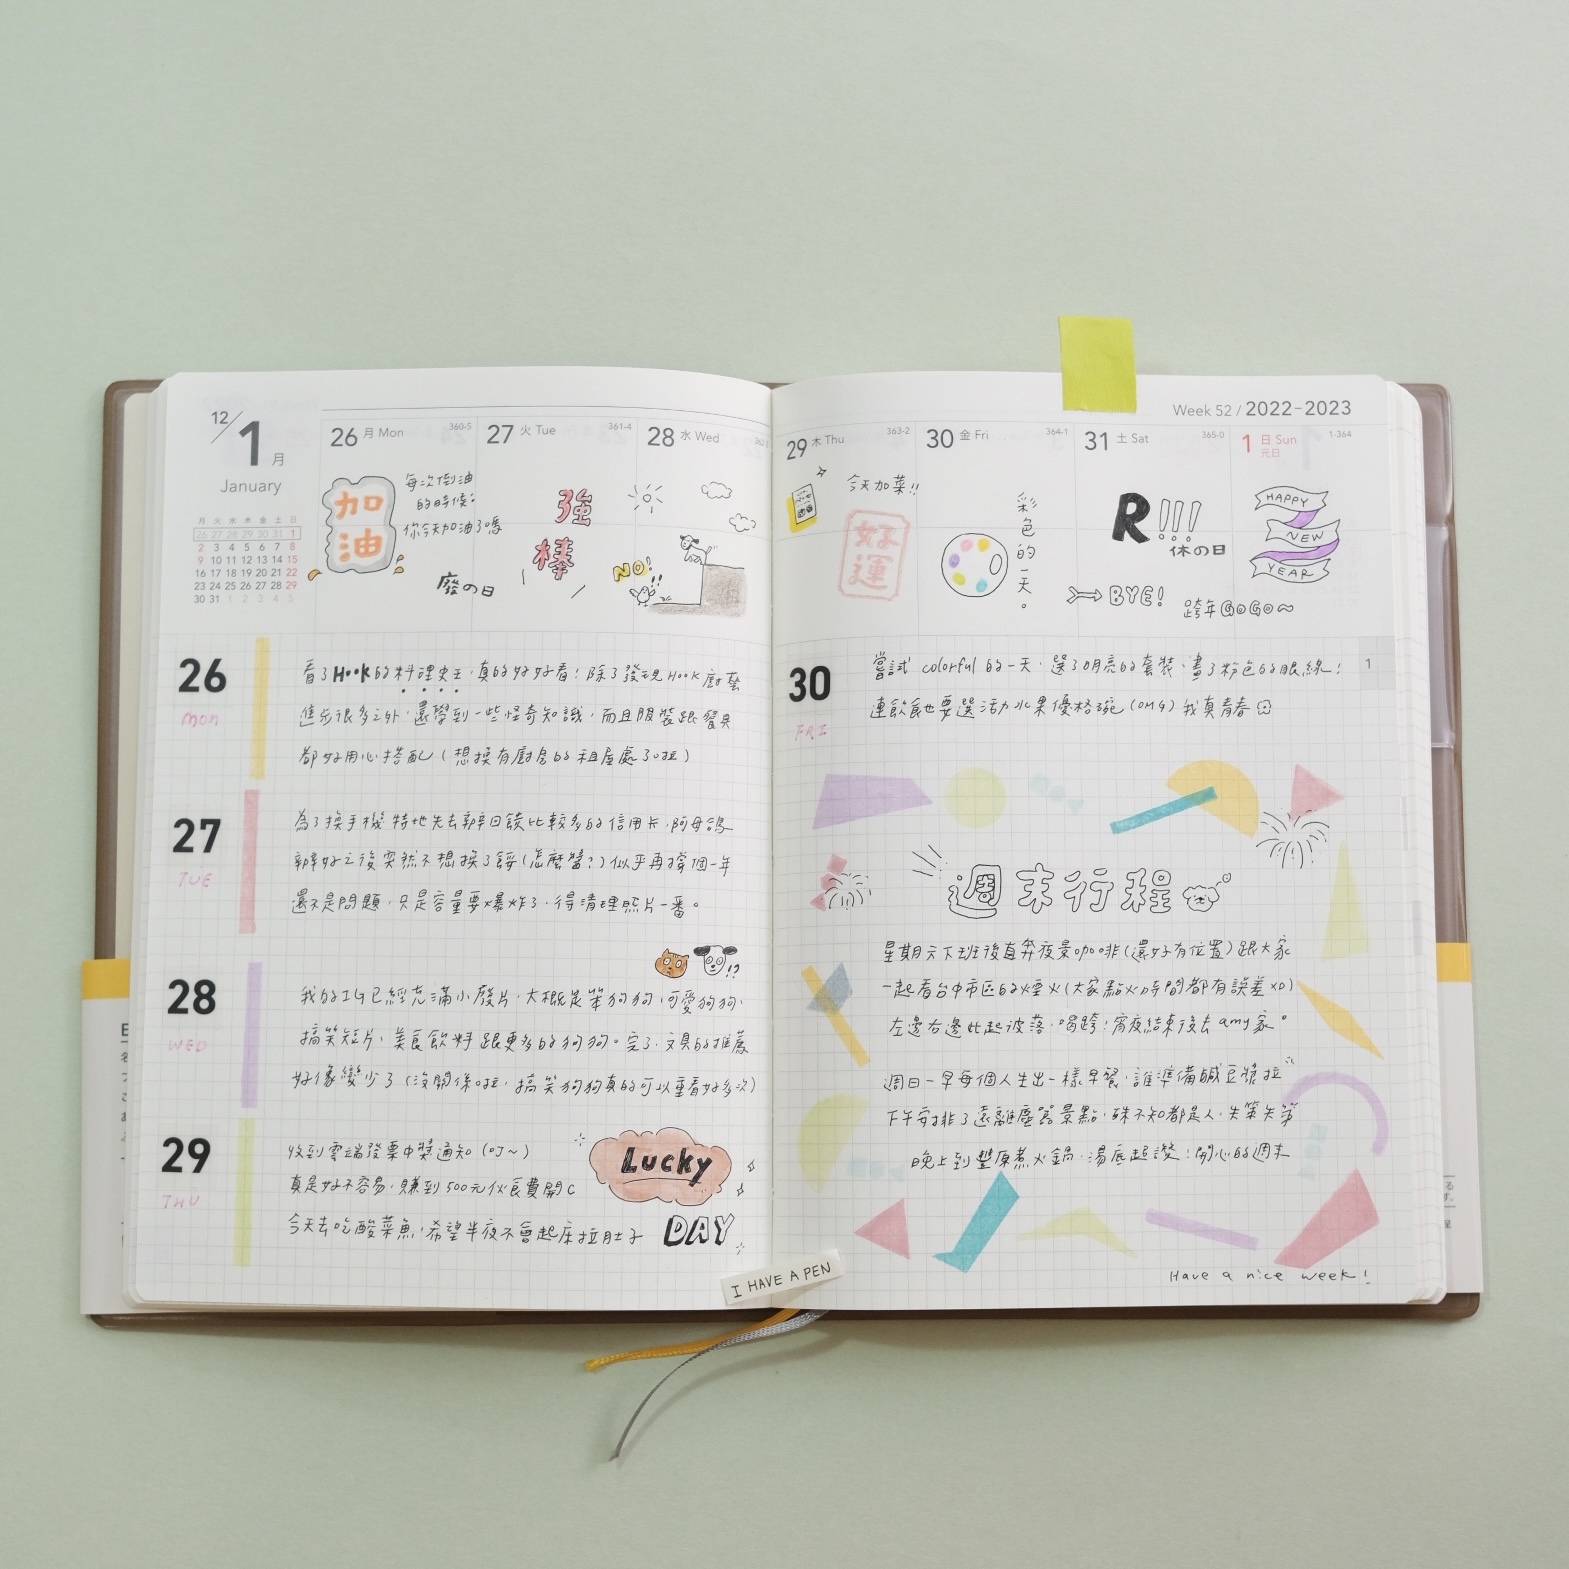 12/1月
January
月 火 水 木 金 土 日
26 27 28 29 30 31 1
2 3 4 5 6 7 8
9 10 11 12 13 14 15
16 17 18 19 20 21 22
23 24 25 26 27 28 29
30 31 1 2 3 4 5
26 月 Mon 360-5
加油
每次倒油
的時候:
你今天加油了嗎
廢の日
27 火 Tue 361-4
強棒
28 水 Wed
NO!
Week 52 / 2022-2023
29 木 Thu 363-2
今天加菜!!
好運
30 金 Fri 364-1
彩色的一天。
31 土 Sat 365-0
R!!!
休の日
BYE!
1 日 Sun 元日 1-364
HAPPY
NEW
YEAR
跨年GOGO~
26
Mon
看了Hook的料理史王,真的好好看!除了發現Hook廚藝
進步很多之外,還學到一些怪奇知識,而且服裝跟餐具
都好用心搭配(想換有廚房的租屋處了啦)
27
TUE
為了換手機特地先去辦回饋比較多的信用卡,阿母
辦好之後突然不想換了餒(怎麼醬?)似乎再撐個一年
還不是問題,只是容量要爆炸了,得清理照片一番。
28
WED
我的IG已經充滿小廢片,大概是笨狗狗,可愛狗狗,
搞笑短片,美食飲料跟更多的狗狗。完了,文具的推薦
好像變少了(沒關係啦,搞笑狗狗真的可以重看好多次)
29
THU
收到雲端發票中獎通知(叮~)
真是好不容易,賺到500元伙食費開C
今天去吃酸菜魚,希望半夜不會起床拉肚子
Lucky
DAY
I HAVE A PEN
30
FRI
嘗試 colorful 的一天,選了明亮的套裝,畫了粉色的眼線!
連飲食也要選活力水果優格碗(OMG)我真青春
1
週末行程
星期六下班後直奔夜景咖啡(還好有位置)跟大家
一起看台中市區的煙火(大家點火時間都有誤差XD)
左邊右邊此起彼落,唱跨!宵夜結束後去amy家。
週日一早每個人生出一樣早餐,誰準備鹹豆漿拉
下午安排了遠離塵囂景點,殊不知都是人,失策失策
晚上到豐原煮火鍋,湯底超讚!開心的週末
Have a nice week!